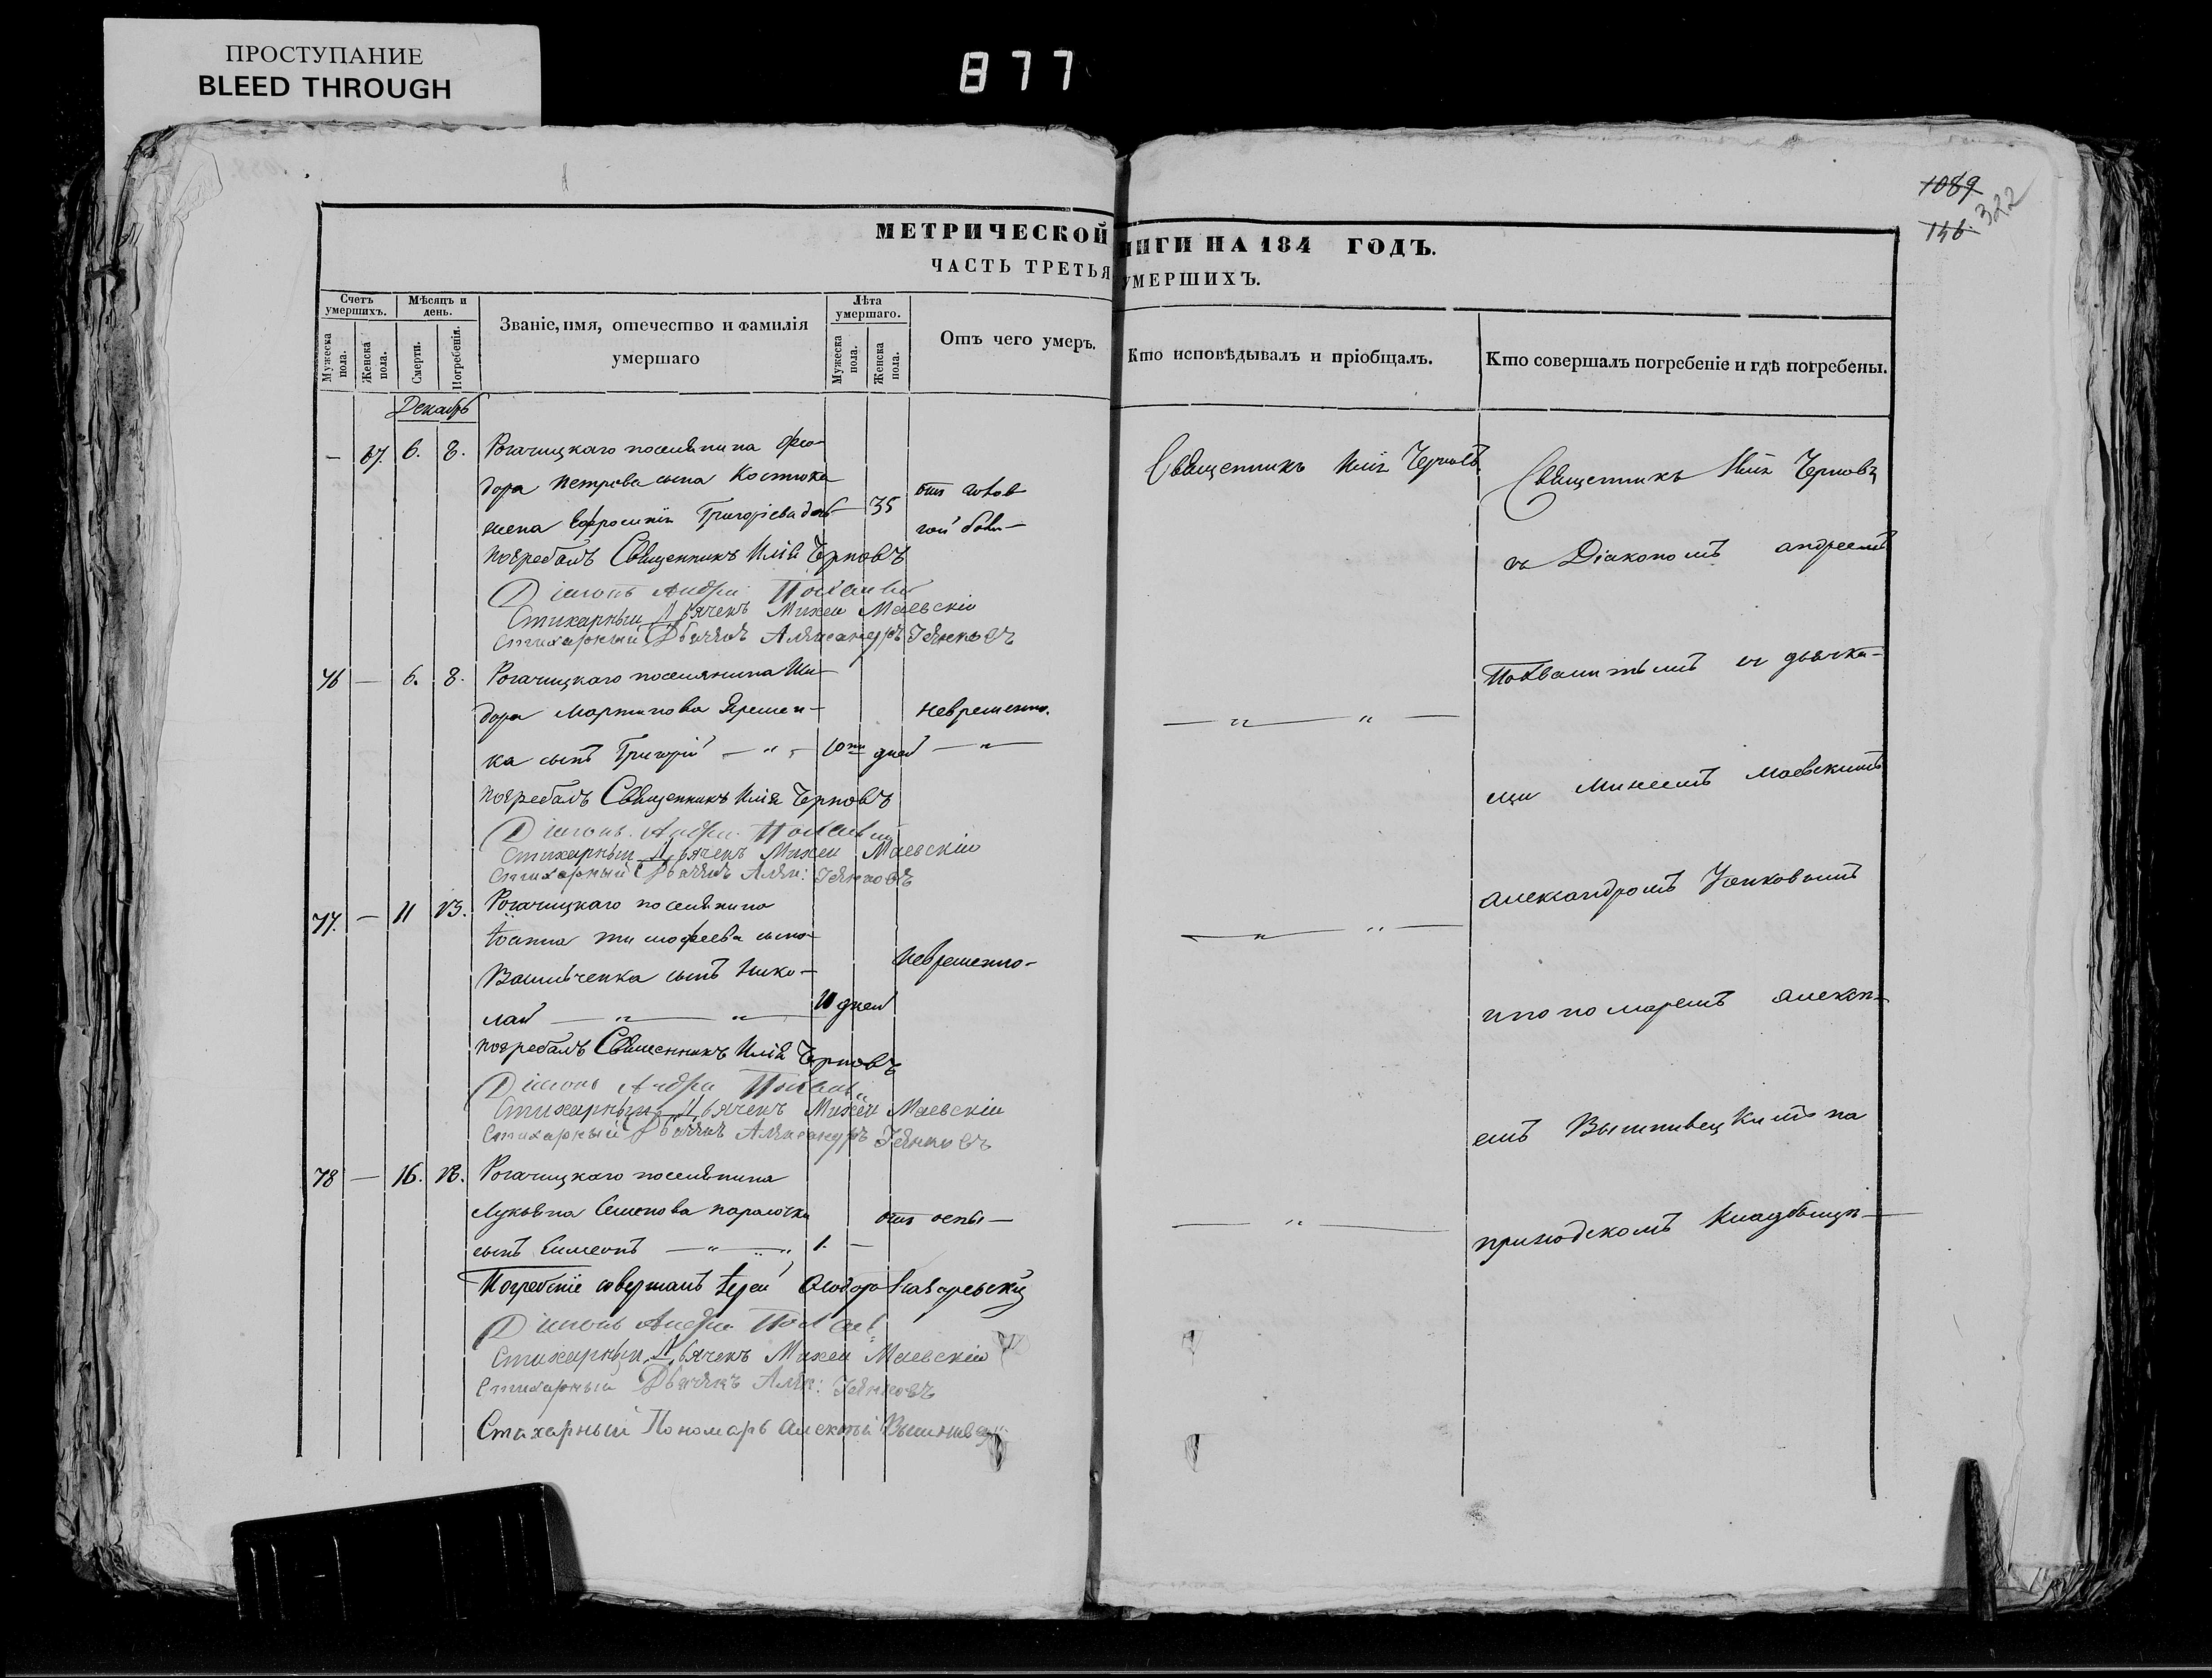 ПРОСТУПАНИЕ
BLEED THROUGH
877
1089
146. 322
МЕТРИЧЕСКОЙ НИГИ НА 184 ГОДЪ.
ЧАСТЬ ТРЕТЬЯ УМЕРШИХЪ.
Счетъ умершихъ.
Мѣсяцъ и день.
Званіе, имя, отечество и фамилія умершаго
Лѣта умершаго.
Отъ чего умеръ.
Кто исповѣдывалъ и пріобщалъ.
Кто совершалъ погребеніе и гдѣ погребены.
Мужеска пола.
Женска пола.
Смерти.
Погребенія.
Мужеска пола.
Женска пола.
Декабрь
— 67. 6. 8. Рогачицкаго поселянина Фео-
дора Петрова сына Костюка
жена Ефросинія Григорієва дочь — 35 отъ голов
ной боли —
Священникъ Илія Черновъ
погребалъ Священникъ Илія Черновъ
Діаконъ Андрей
Стихарный Дьячекъ Михей Маевскій
Стихарный Дьячокъ Александръ
76 — 6. 8. Рогачицкаго поселянина
дора Мартинова Яремен-
ка сынъ Григорій — " — 10ти дней — " —
невременно.
погребалъ Священникъ Илія Черновъ
Діаконъ Андрей
Стихарный Дьячекъ Михей Маевскій
Стихарный Дьячокъ Алек:
77. — 11 13. Рогачицкаго поселянина
Іоанна Тимофеева сына
Васильченка сынъ Нико-
лай — " — " — 11 дней
Невременно-
погребалъ Священникъ Илія Черновъ
Діаконъ Андрей
Стихарный Дьячекъ Михей Маевскій
Стихарный Дьячокъ Александръ
78 — 16. 18. Рогачицкаго поселянина
Лукьяна Семенова
отъ оспы —
сынъ Симеонъ — " — " 1. —
Погребеніе совершалъ Іерей
Діаконъ Андрей
Стихарный Дьячекъ Михей Маевскій
Стихарный Дьячокъ Алек:
Стихарный Пономарь Алексій
Священникъ Илія Черновъ
съ Діакономъ Андреемъ
и дьячка-
ми Михеемъ Маевскимъ
Александромъ
и пономаремъ Алексі-
емъ на
приходскомъ кладбищѣ —